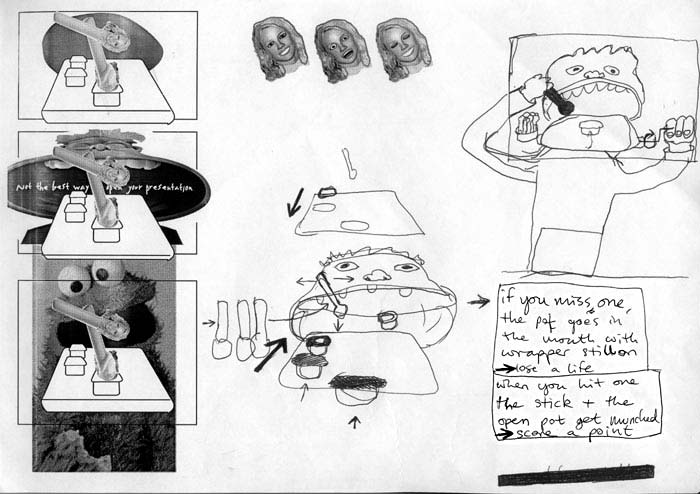 Not the best way open your presentation
if you miss one,
the pot goes in
the mouth with
wrapper still on
lose a life
when you hit one
the stick + the
open pot get munched
score a point